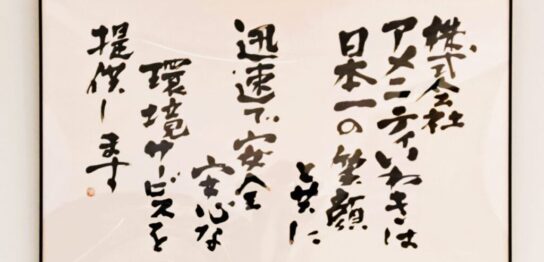 株式会社
アメニティいわきは
日本一の笑顔
と共に
迅速で安全
安心な
環境サービスを
提供します